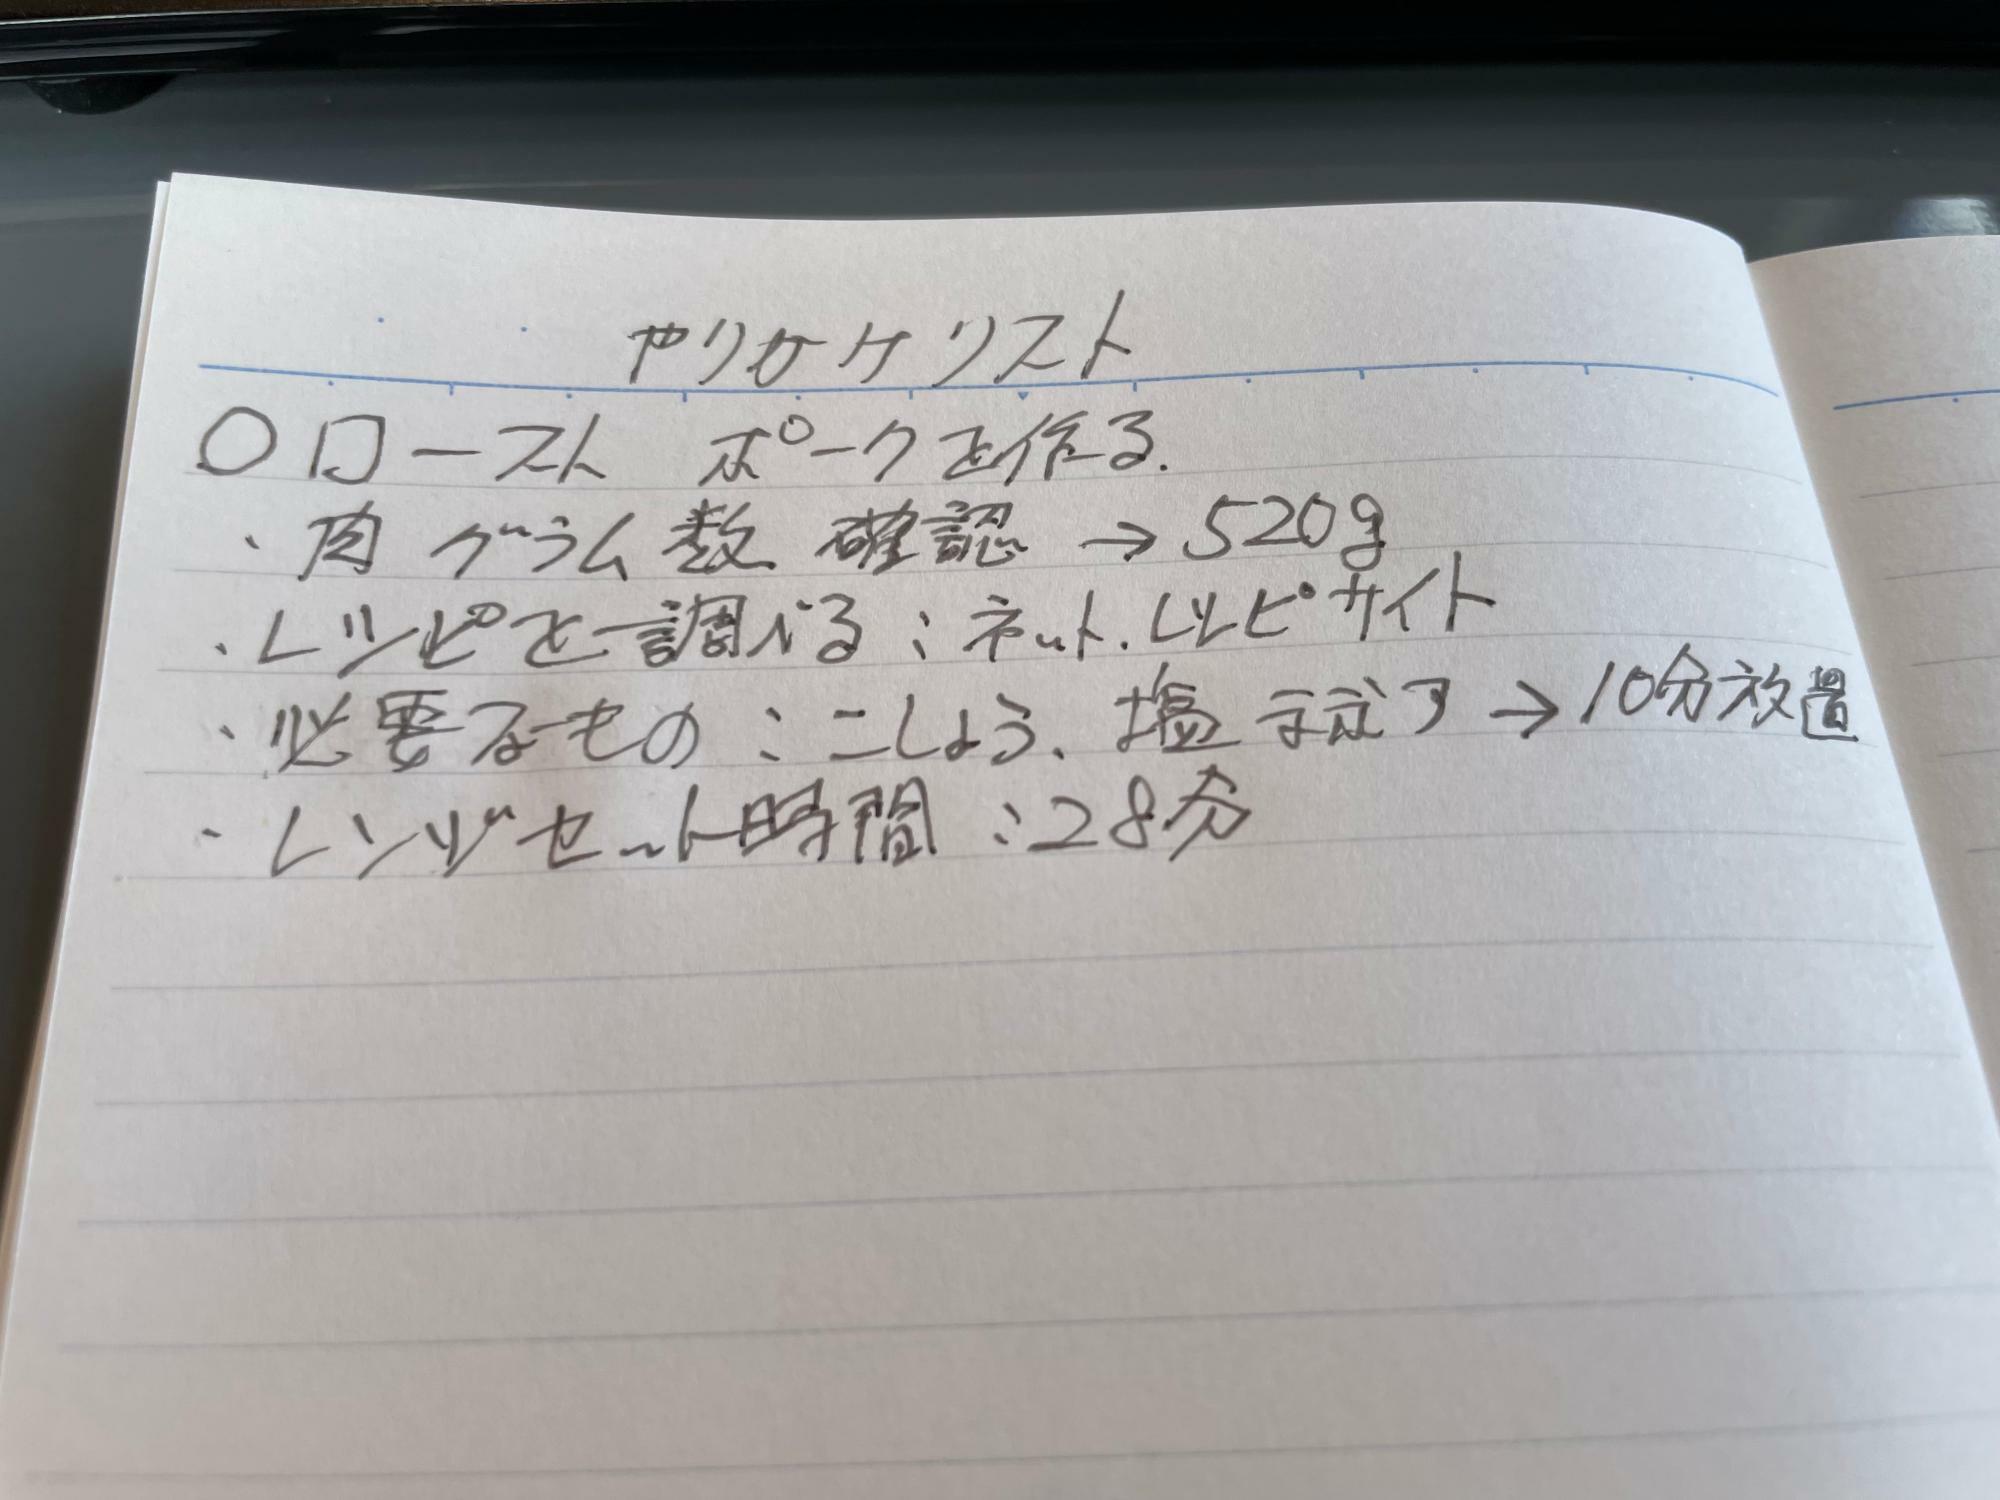 やりかけリスト
〇ロースト ポークを作る.
・肉 グラム数 確認 → 520g
・レシピを調べる：ネット.レシピサイト
・必要なもの：こしょう、塩 →10分放置
・レンジセット時間：28分